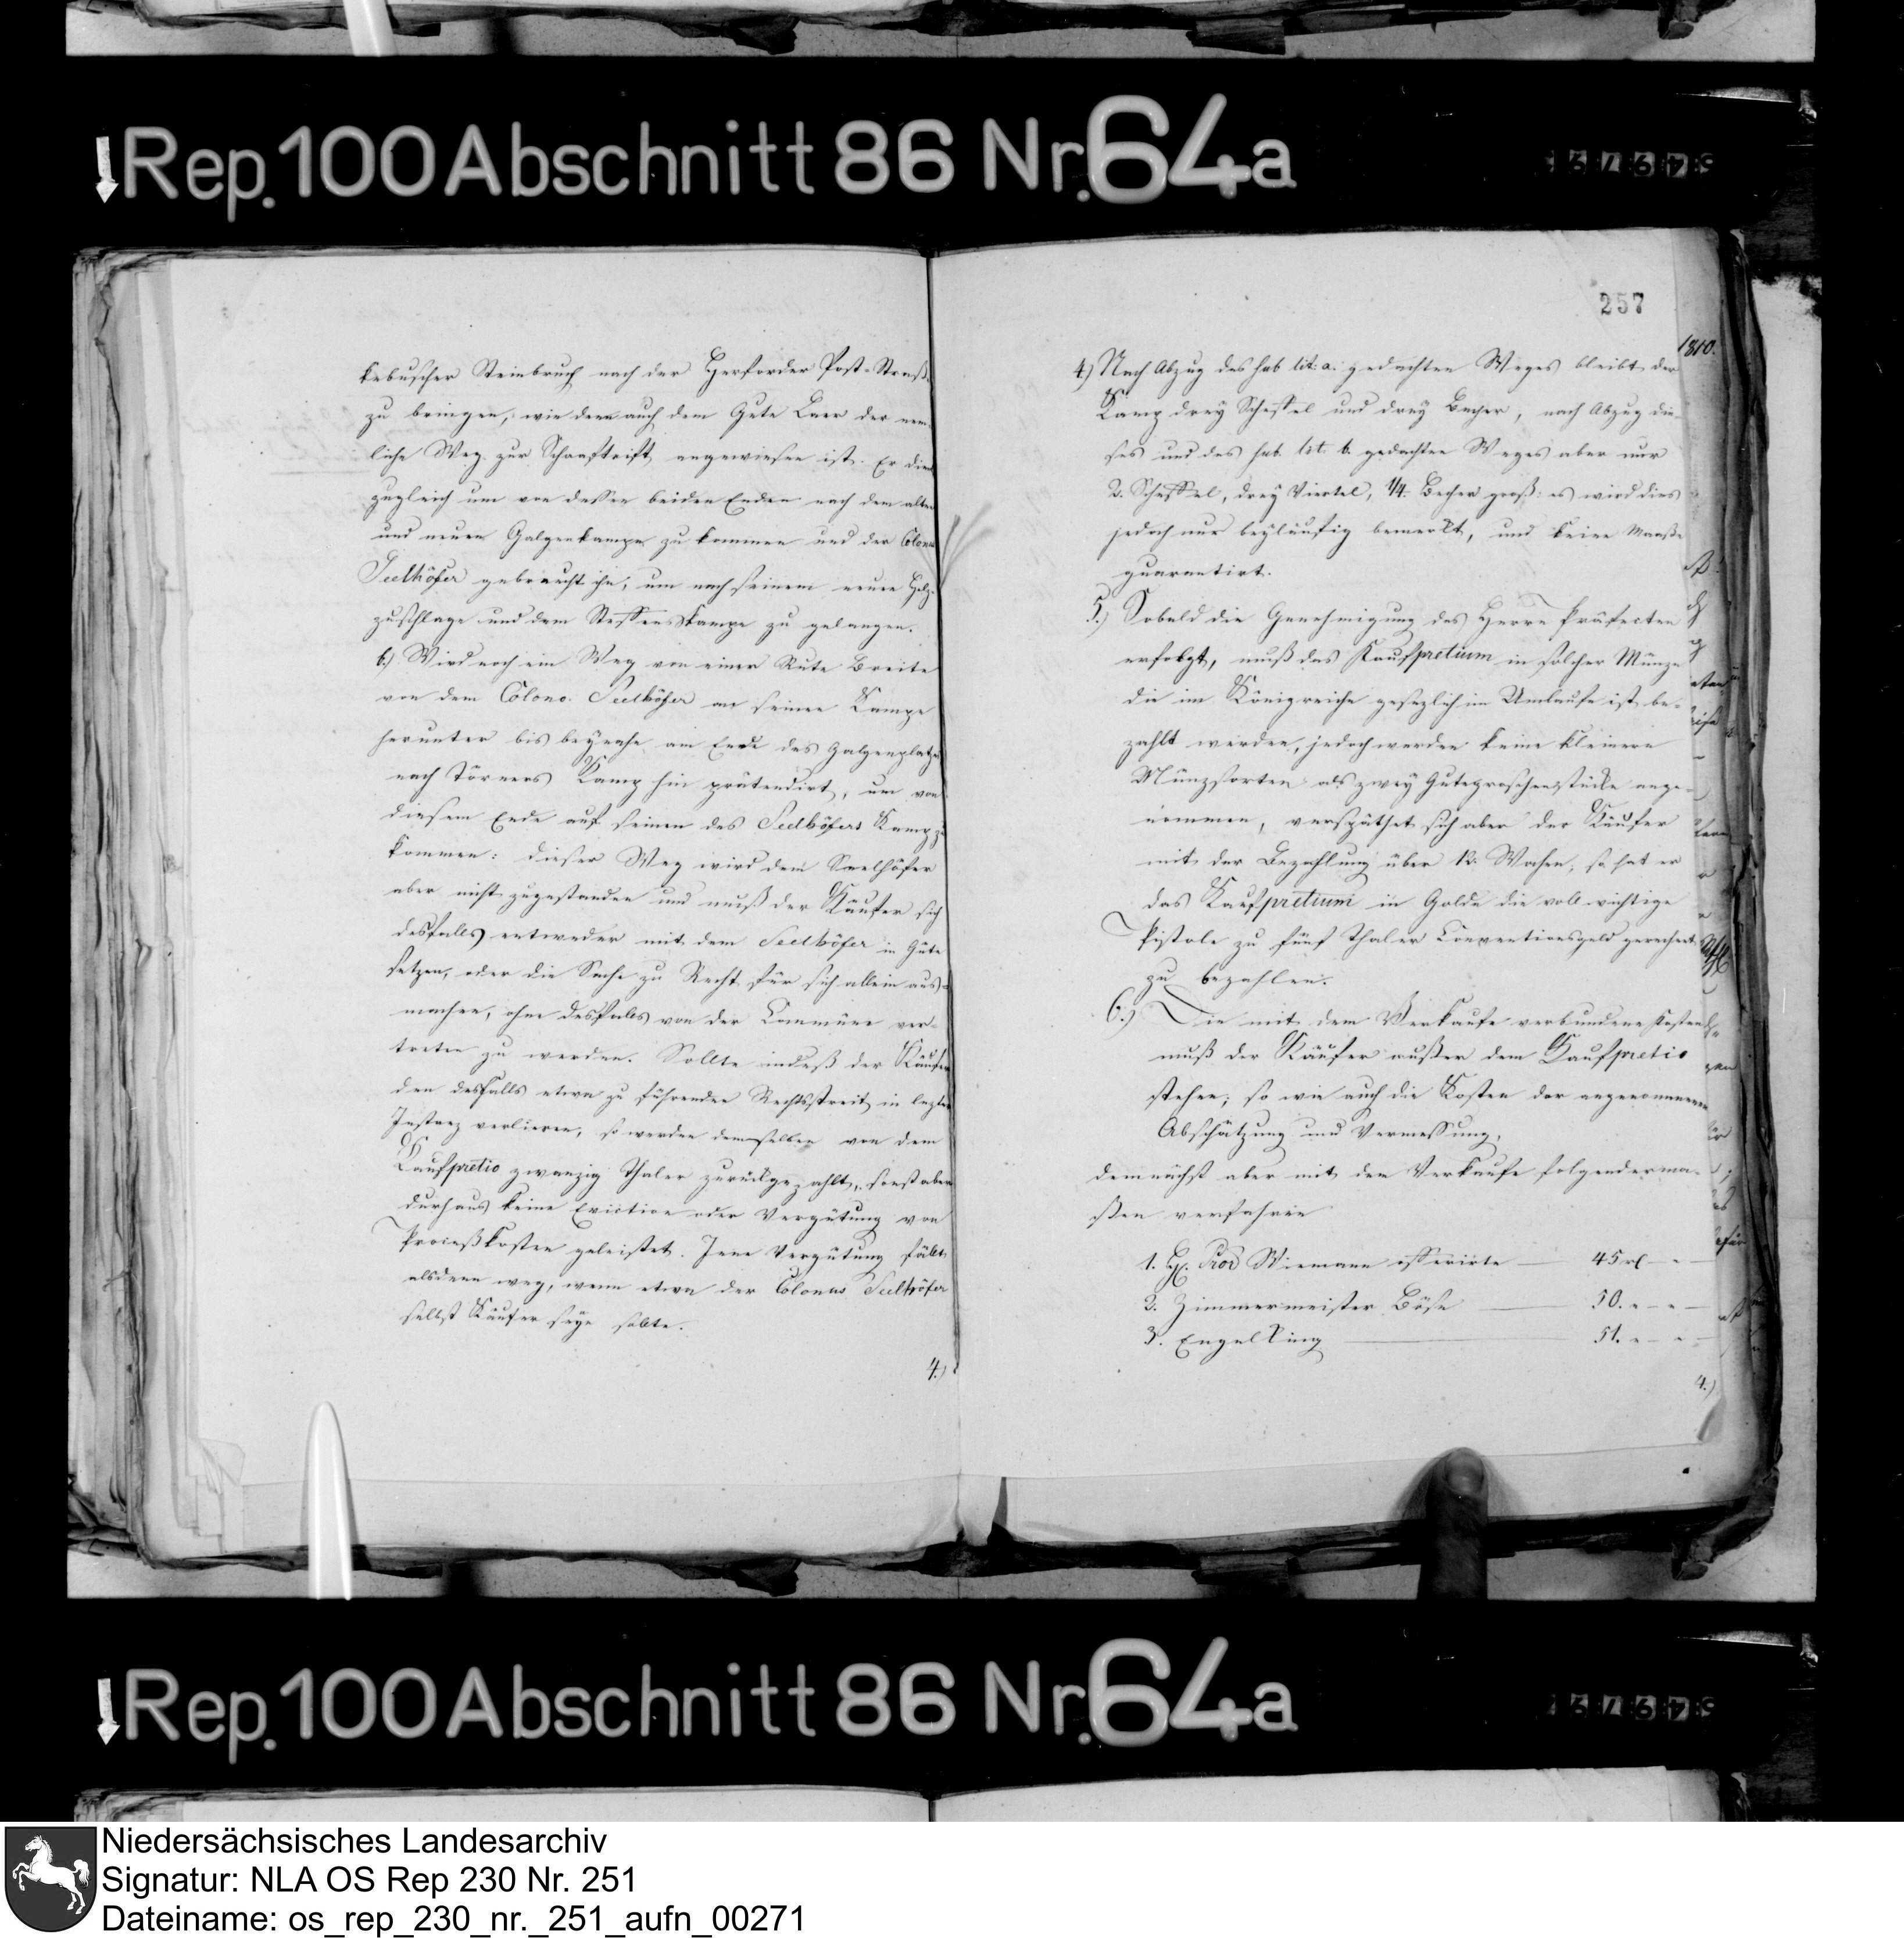 Rep. 100 Abschnitt 86 Nr. 64a
kebuscher Steinbruch nach der Herforder Post-Straß
zu bringen, wie denn auch dem Gute Laer der nem-
liche Weg zur Schaaftrift angewiesen ist. Er dient
zugleich um von dessen beiden Enden nach dem alten
und neuen Galgenkampe zu kommen und der Colonus
Seelhöfer gebraucht ihn, um nach seinem neuen Holz-
zuschlage und dem Steffenskampe zu gelangen.
b.) Wird noch ein Weg von einer Rute Breite
von dem Colono Seelhöfer an seinen Kampe
herunter bis beynahe am Ende des Galgenplatzes
nach Törners Kamp hin prätendirt, um von
diesem Ende auf seinen des Seelhöfers Kamp zu
kommen: dieser Weg wird dem Seelhöfer
aber nicht zugestanden und muß der Käufer sich
desfalls entweder mit dem Seelhöfer in Güte
setzen, oder die Sache zu Recht für sich allein aus-
machen, ohne desfalls von der Commüne ver-
treten zu werden. Sollte indeß der Käufer
den desfalls etwa zu führenden Rechtsstreit in lezter
Instanz verlieren, so werden demselben von dem
Kaufpretio zwanzig Thaler zurückgezahlt, sonst aber
durchaus keine Eviction oder Vergütung von
Proceßkosten geleistet. Jene Vergütung fält
alsdenn weg, wenn etwa der Colonus Seelhöfer
selbst Käufer seyn solte.
4.)
257
1810.
4.) Nach Abzug des sub lit: a. gedachten Weges bleibt der
Kamp drey Scheffel und drey Becher, nach Abzug die-
ses und des sub lit. b. gedachten Weges aber nur
2. Scheffel, drey Viertel, 1/4. Becher groß: es wird dies
jedoch nur beyläufig bemerkt, und keine Maaße
guarantirt.
5.) Sobald die Genehmigung des Herrn Präfecten
erfolgt, muß das Kaufpretium in solcher Münze
die im Königreiche gesezlich im Umlaufe ist be-
zahlt werden, jedoch werden keine kleinern
Münzsorten als zwey Gutegroschenstücke ange-
nommen, verspäthet sich aber der Käufer
mit der Bezahlung über 12. Wochen, so hat er
das Kaufpretium in Golde die voll wichtige
Pistole zu fünf Thaler Conventionsgeld gerechnet
zu bezahlen.
6.) Die mit dem Verkaufe verbundene Kosten
muß der Käufer außer dem Kaufpretio
stehen; so wie auch die Kosten der angenommenen
Abschätzung und Vermessung,
demnächst aber mit den Verkaufe folgenderma-
ßen verfahren
1. H. Prov Wiemann offerirte — 45 rt - " -
2. Zimmermeister Böse — 50. " - " -
3. Engelking — 51. " - " -
4.)
Rep. 100 Abschnitt 86 Nr. 64a
Niedersächsisches Landesarchiv
Signatur: NLA OS Rep 230 Nr. 251
Dateiname: os_rep_230_nr._251_aufn_00271